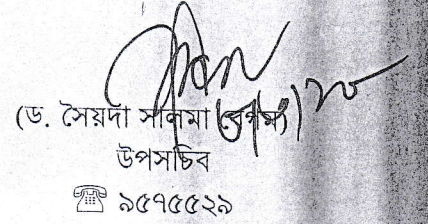 (ড. সৈয়দা সালমা বেগম)
উপসচিব
☎ ৯৫৭৫৫২৯